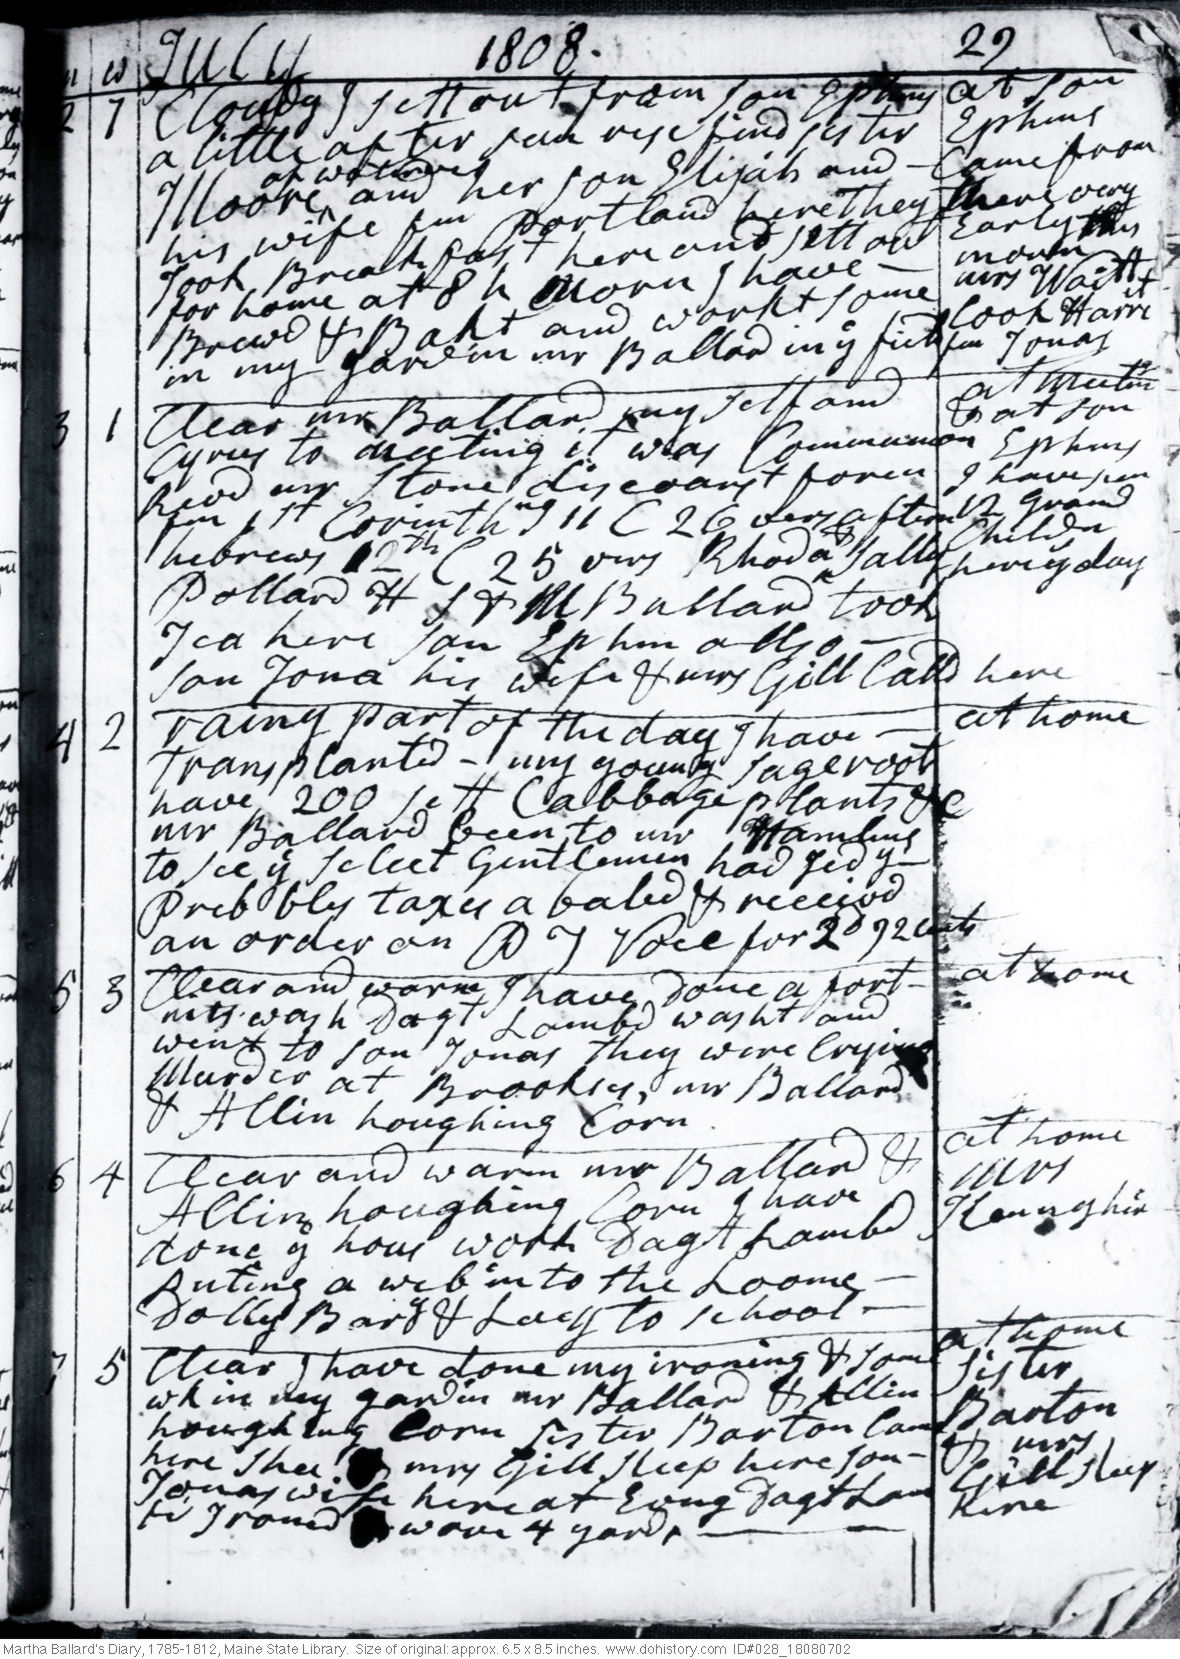 m w July 1808. 29
2 7 Cloudy I sett out from son Ephms at son
a little after sun rise find sister Ephms
of watervil
Moore, and her son Elijah and - Came from
his wife fm Portland here they there very
Took Breakfast here and sett out Early this
for home at 8 h morn I have - morn
Brewd & Bakt and workt some mrs Wait
in my gardin mr Ballard in ÿ field took Harrit
fm Jonas
3 1 Clear mr Ballard, my self and at meetin
Cyrus to meeting it was Communion & at son
Revd mr Stone discoarst foren Ephms
fm 1st Corinthng 11 C 26 vers aftern I have seen
hebrews 12th C 25 vers Rhoda & Sally 12 Grand
Pollard H S & M Ballard took Childn
Tea here son Ephm allso - here ÿ day
son Jona his wife & mrs Gill Calld here
4 2 rainy part of the day I have - at home
transplantd - my young sage root
have 200 sett Cabbage plants &C
mr Ballard been to mr Hamlins
to see ÿ select Gentlemen had
taxes abated & receivd
an order on P J Voce for 2 D 72 Cents
5 3 Clear and warm I have done a fort- at home
nits wash Dagt Lambd washt and
went to son Jonas they were Crying
Murder at Brookses, mr Ballard
& Allin houghing Corn.
6 4 Clear and warm mr Ballard & at home
Allin houghing Corn I have mrs
done ÿ hous work Dagt Lambd here
puting a web into the Loome -
Dolly Barg & Lucy to school -
7 5 Clear I have done my ironing & some at home
wk in my gardin mr Ballard & Allin sister
houghing Corn sister Barton Came Barton
here shee mrs Gill sleep here son - & mrs
Jonas wife here at Evng Dagt Lam Gill sleep
Ironed wove 4 yards here
Martha Ballard's Diary, 1785-1812, Maine State Library. Size of original: approx. 6.5 x 8.5 inches. www.dohistory.com ID#028_18080702